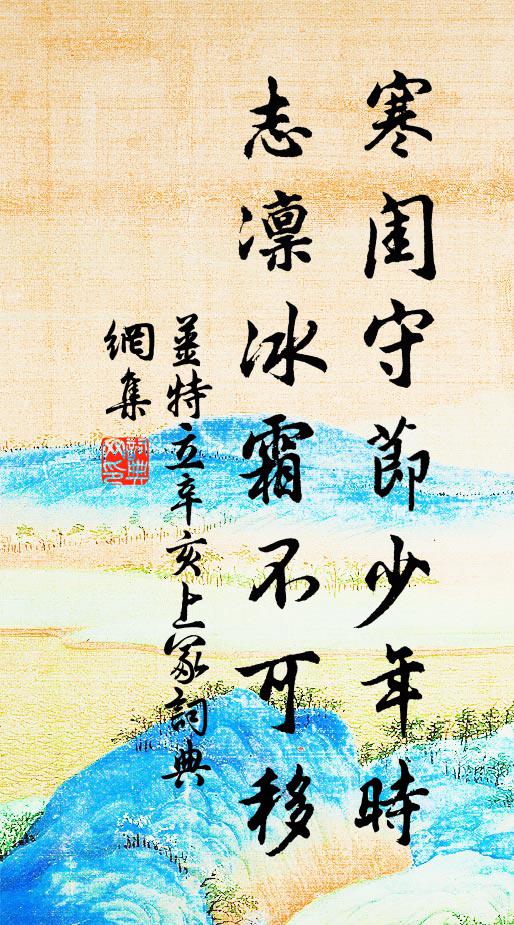 寒閨守節少年時
志凜冰霜不可移
姜特立辛亥上冢詞典
網集